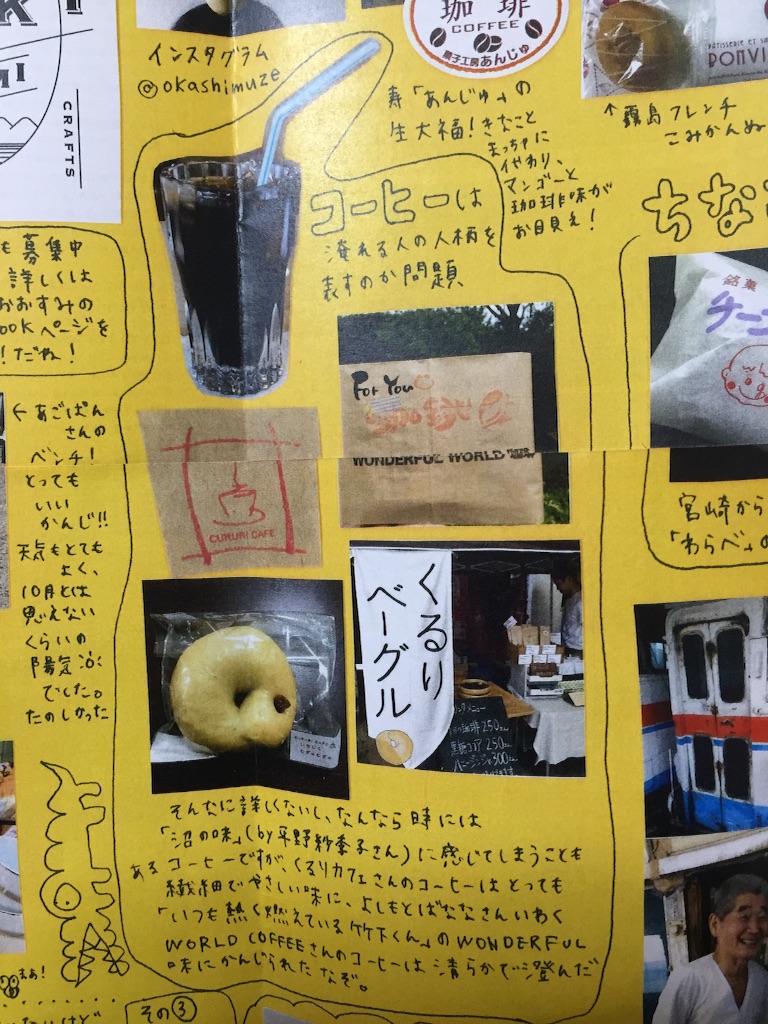 CRAFTS
インスタグラム
@okashimuze
珈琲
COFFEE
菓子工房あんじゅ
寿「あんじゅ」の
生大福！きなこと
まっちゃに
代わり、
マンゴーと
珈琲味が
お目見え！
↑霧島フレンチ
こみかんぬ
PATISSERIE ET SA
BONVI
ちな
も募集中
詳しくは
おおすみの
ookページを
！だね！
コーヒーは
淹れる人の人柄を
表すのか問題
銘菓
チー
For You
WONDERFUL WORLD 珈琲
CUKURI CAFE
←あごぱん
さんの
ベンチ！
とっても
いい
かんじ!!
天気もとても
よく、
10月とは
思えない
くらいの
陽気
でした。
たのしかった
宮崎から
「わらべ」の
くるり
ベーグル
メニュー
珈琲 250
黒糖ココア 250
300
そんなに詳しくないし、なんなら時には
「沼の味」(by平野紗季子さん)に感じてしまうことも
あるコーヒーですが、くるりカフェさんのコーヒーはとっても
繊細でやさしい味に、よしもとばななさんいわく
「いつも熱く燃えている竹下くん」のWONDERFUL
WORLD COFFEEさんのコーヒーは清らかで澄んだ
味にかんじられたなぞ。
まぁ！
その③